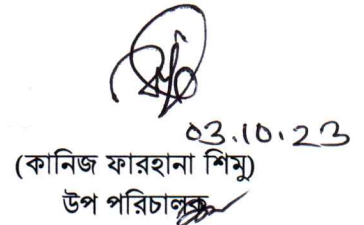 03.10.23
(কানিজ ফারহানা শিমু)
উপ পরিচালক